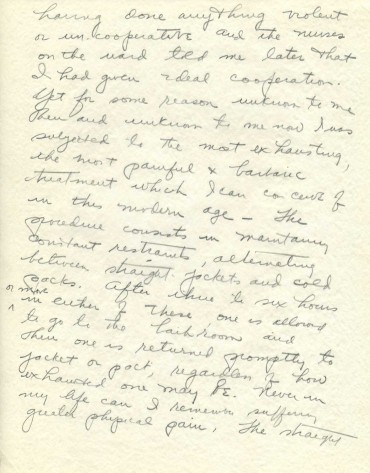 having done anything violent
or un-cooperative and the nurses
on the ward told me later that
I had given ideal cooperation.
Yet for some reason unknown to me
then and unknown to me now I was
subjected to the most exhausting,
the most painful & barbaric
treatment which I can conceive of
in this modern age - The
procedure consists in maintaining
constant restraints, alternating
between straight jackets and cold
packs. After three to six hours
or more
in either of these one is allowed
to go to the bathroom and
then one is returned promptly to
jacket or pack, regardless of how
exhausted one may be. Never in
my life can I remember suffering
greater physical pain. The straight